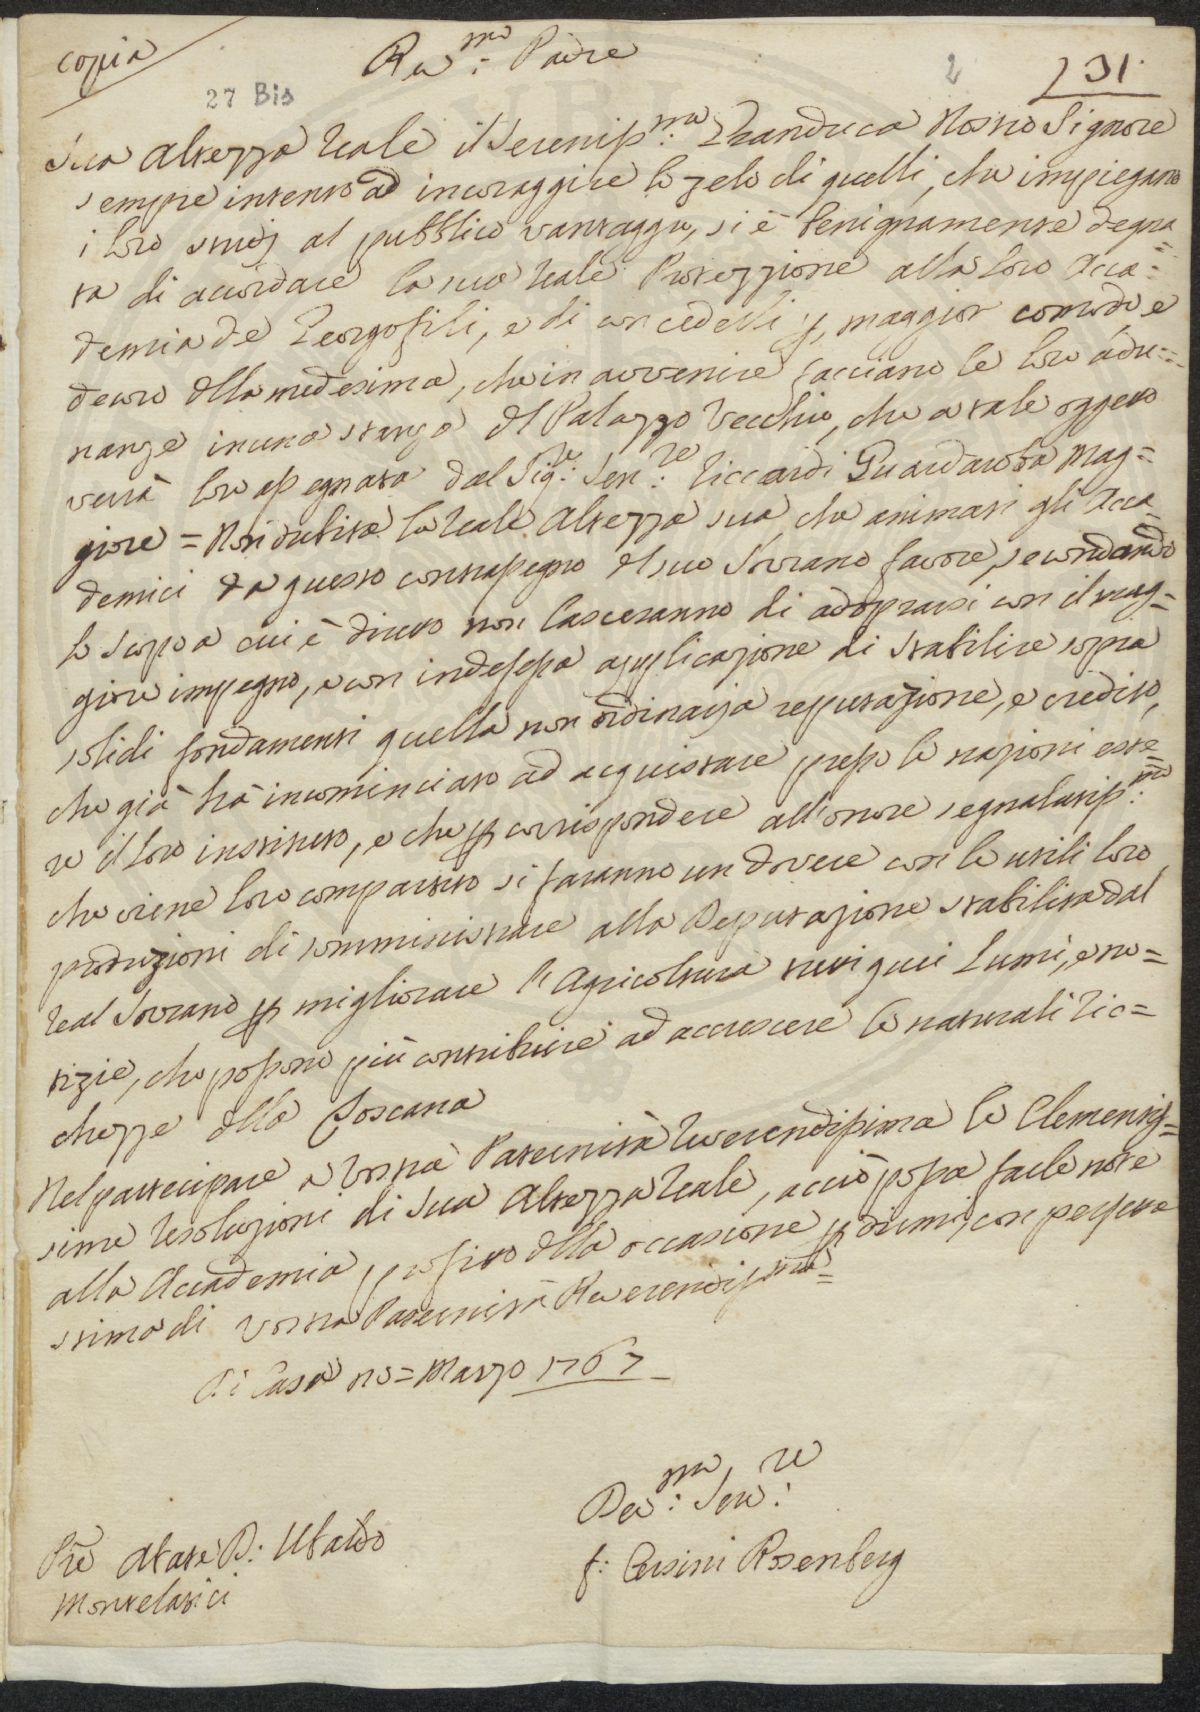 copia
Rev.mo Padre
2
131.
27 Bis
Sua Altezza Reale il Sereniss.mo Granduca Nostro Signore
sempre intento ad incoraggire lo zelo di quelli, che impiegano
i loro studj al pubblico vantaggio, si è benignamente degna=
ta di accordare la sua Reale Protezzione alla loro Acca=
demia de Georgofili, e di concederli p maggior comodo e
decoro della medesima, che in avvenire facciano le loro adu=
nanze in una stanza del Palazzo Vecchio, che a tale oggetto
verrà loro assegnata dal Sig.re Sen.re Riccardi Guardaroba Mag=
giore = Non dubita la Reale Altezza sua che animati gli Acca=
demici da questo contrassegno del suo Sovrano favore, secondando
lo scopo a cui è diretto non lasceranno di adoprarsi con il mag=
giore impegno, e con indefessa applicazione di stabilire sopra
solidi fondamenti quella non ordinaria reputazione, e credito,
che già hà incominciato ad acquistare presso le nazioni este=
re il loro instituto, e che p corrispondere all'onore segnalatiss.mo
che viene loro compartito si faranno un dovere con le utili loro
produzioni di somministrare alla Deputazione stabilita dal
Real Sovrano p migliorare l'Agricoltura tutti quei Lumi, e no=
tizie, che possono più contribuire ad accrescere le naturali ric=
chezze della Toscana
Nel partecipare a Vostra Paternità Reverendissima le Clementis=
sime Resoluzioni di Sua Altezza Reale, acciò possa farle note
alla Accademia, profitto della occasione p dirmi con perfetta
stima di Vostra Paternità Reverendissima=
Di Casa no= Marzo 1767
Dev.mo Ser.re
f: Orsini Rosenberg
Pre Abate D: Ubaldo
Montelatici